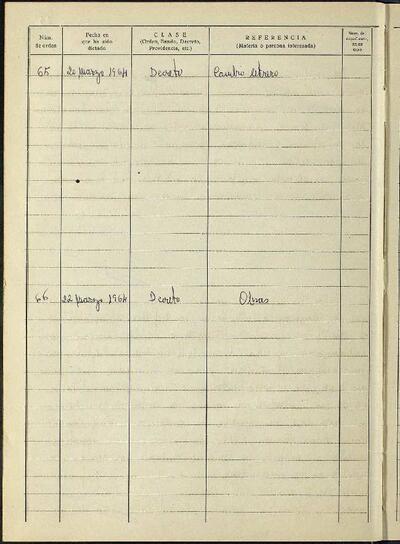 Núm. de orden
Fecha en que ha sido dictado
CLASE
(Orden, Bando, Decreto, Providencia, etc.)
REFERENCIA
(Materia o persona interesada)
65 20 Marzo 1964 Decreto Cambio
66 22 Marzo 1964 Decreto Obras